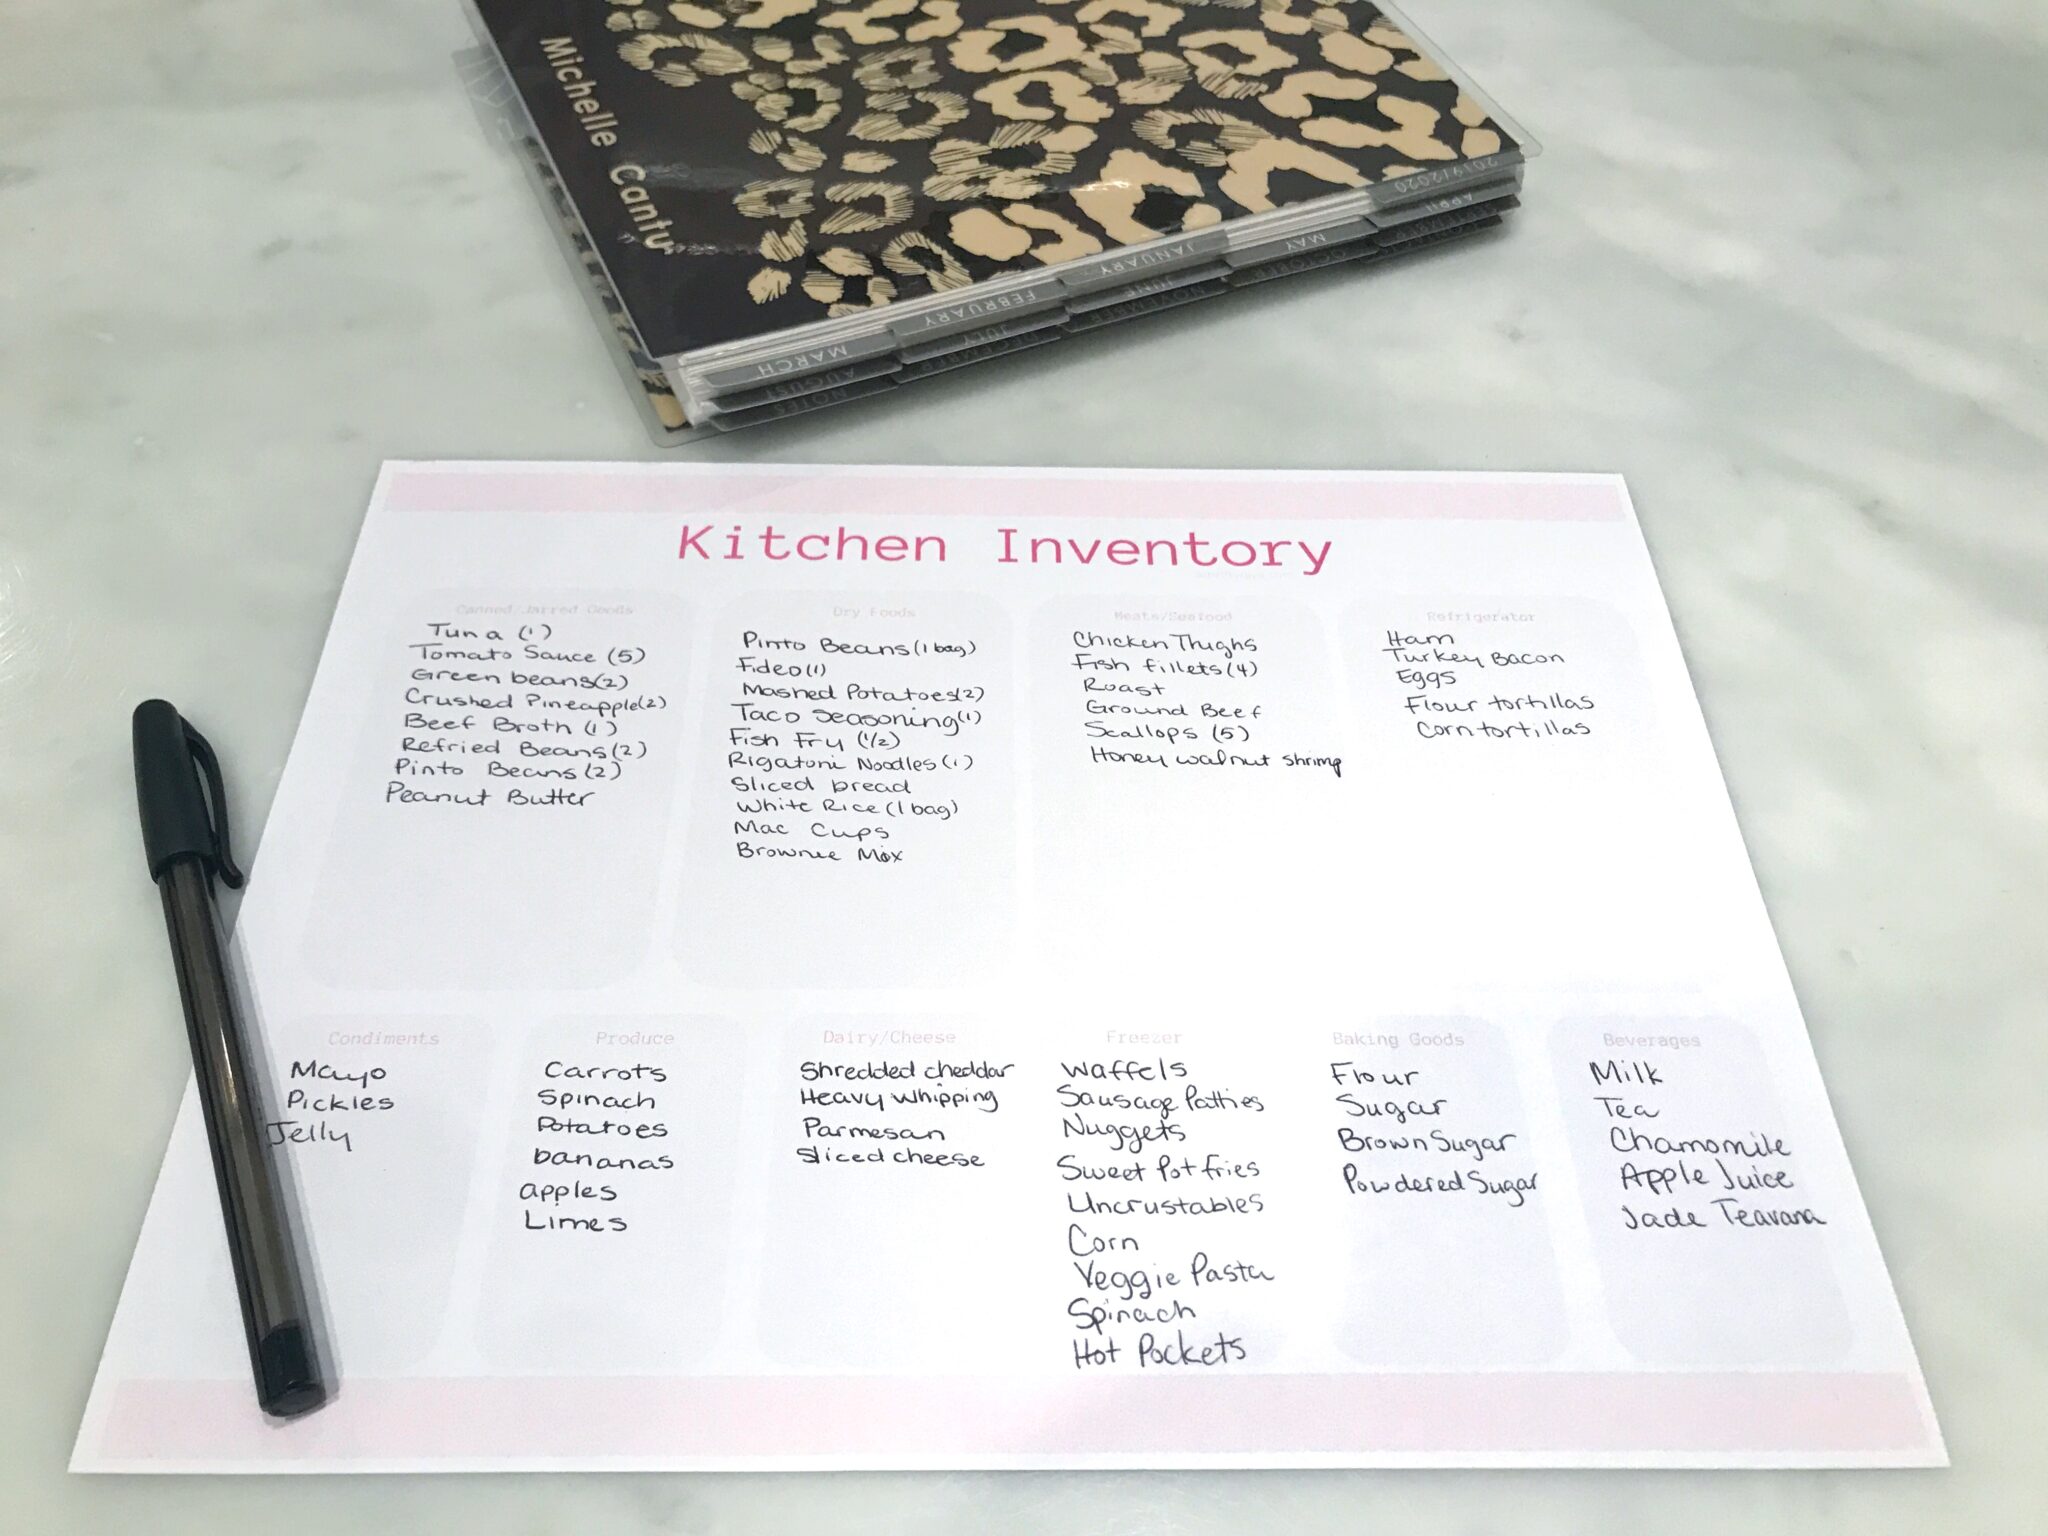 Michelle Cantu
2019/2020
APRIL
MAY
OCTOBER
JANUARY
JUNE
NOVEMBER
FEBRUARY
JULY
DECEMBER
MARCH
AUGUST
NOTES
Kitchen Inventory
Canned/Jarred Goods
Tuna (1)
Tomato Sauce (5)
Green beans(2)
Crushed Pineapple(2)
Beef Broth (1)
Refried Beans(2)
Pinto Beans(2)
Peanut Butter
Dry Foods
Pinto Beans(1 bag)
Fideo(1)
Mashed Potatoes(2)
Taco Seasoning(1)
Fish Fry (1/2)
Rigatoni Noodles(1)
Sliced bread
White Rice(1 bag)
Mac Cups
Brownie Mix
Meats/Seafood
Chicken Thighs
Fish fillets(4)
Roast
Ground Beef
Scallops (5)
Honey walnut shrimp
Refrigerator
Ham
Turkey Bacon
Eggs
Flour tortillas
Corn tortillas
Condiments
Mayo
Pickles
Jelly
Produce
Carrots
Spinach
Potatoes
bananas
apples
Limes
Dairy/Cheese
Shredded cheddar
Heavy whipping
Parmesan
Sliced cheese
Freezer
Waffels
Sausage Patties
Nuggets
Sweet Pot fries
Uncrustables
Corn
Veggie Pasta
Spinach
Hot Pockets
Baking Goods
Flour
Sugar
Brown Sugar
Powdered Sugar
Beverages
Milk
Tea
Chamomile
Apple Juice
Jade Teavana